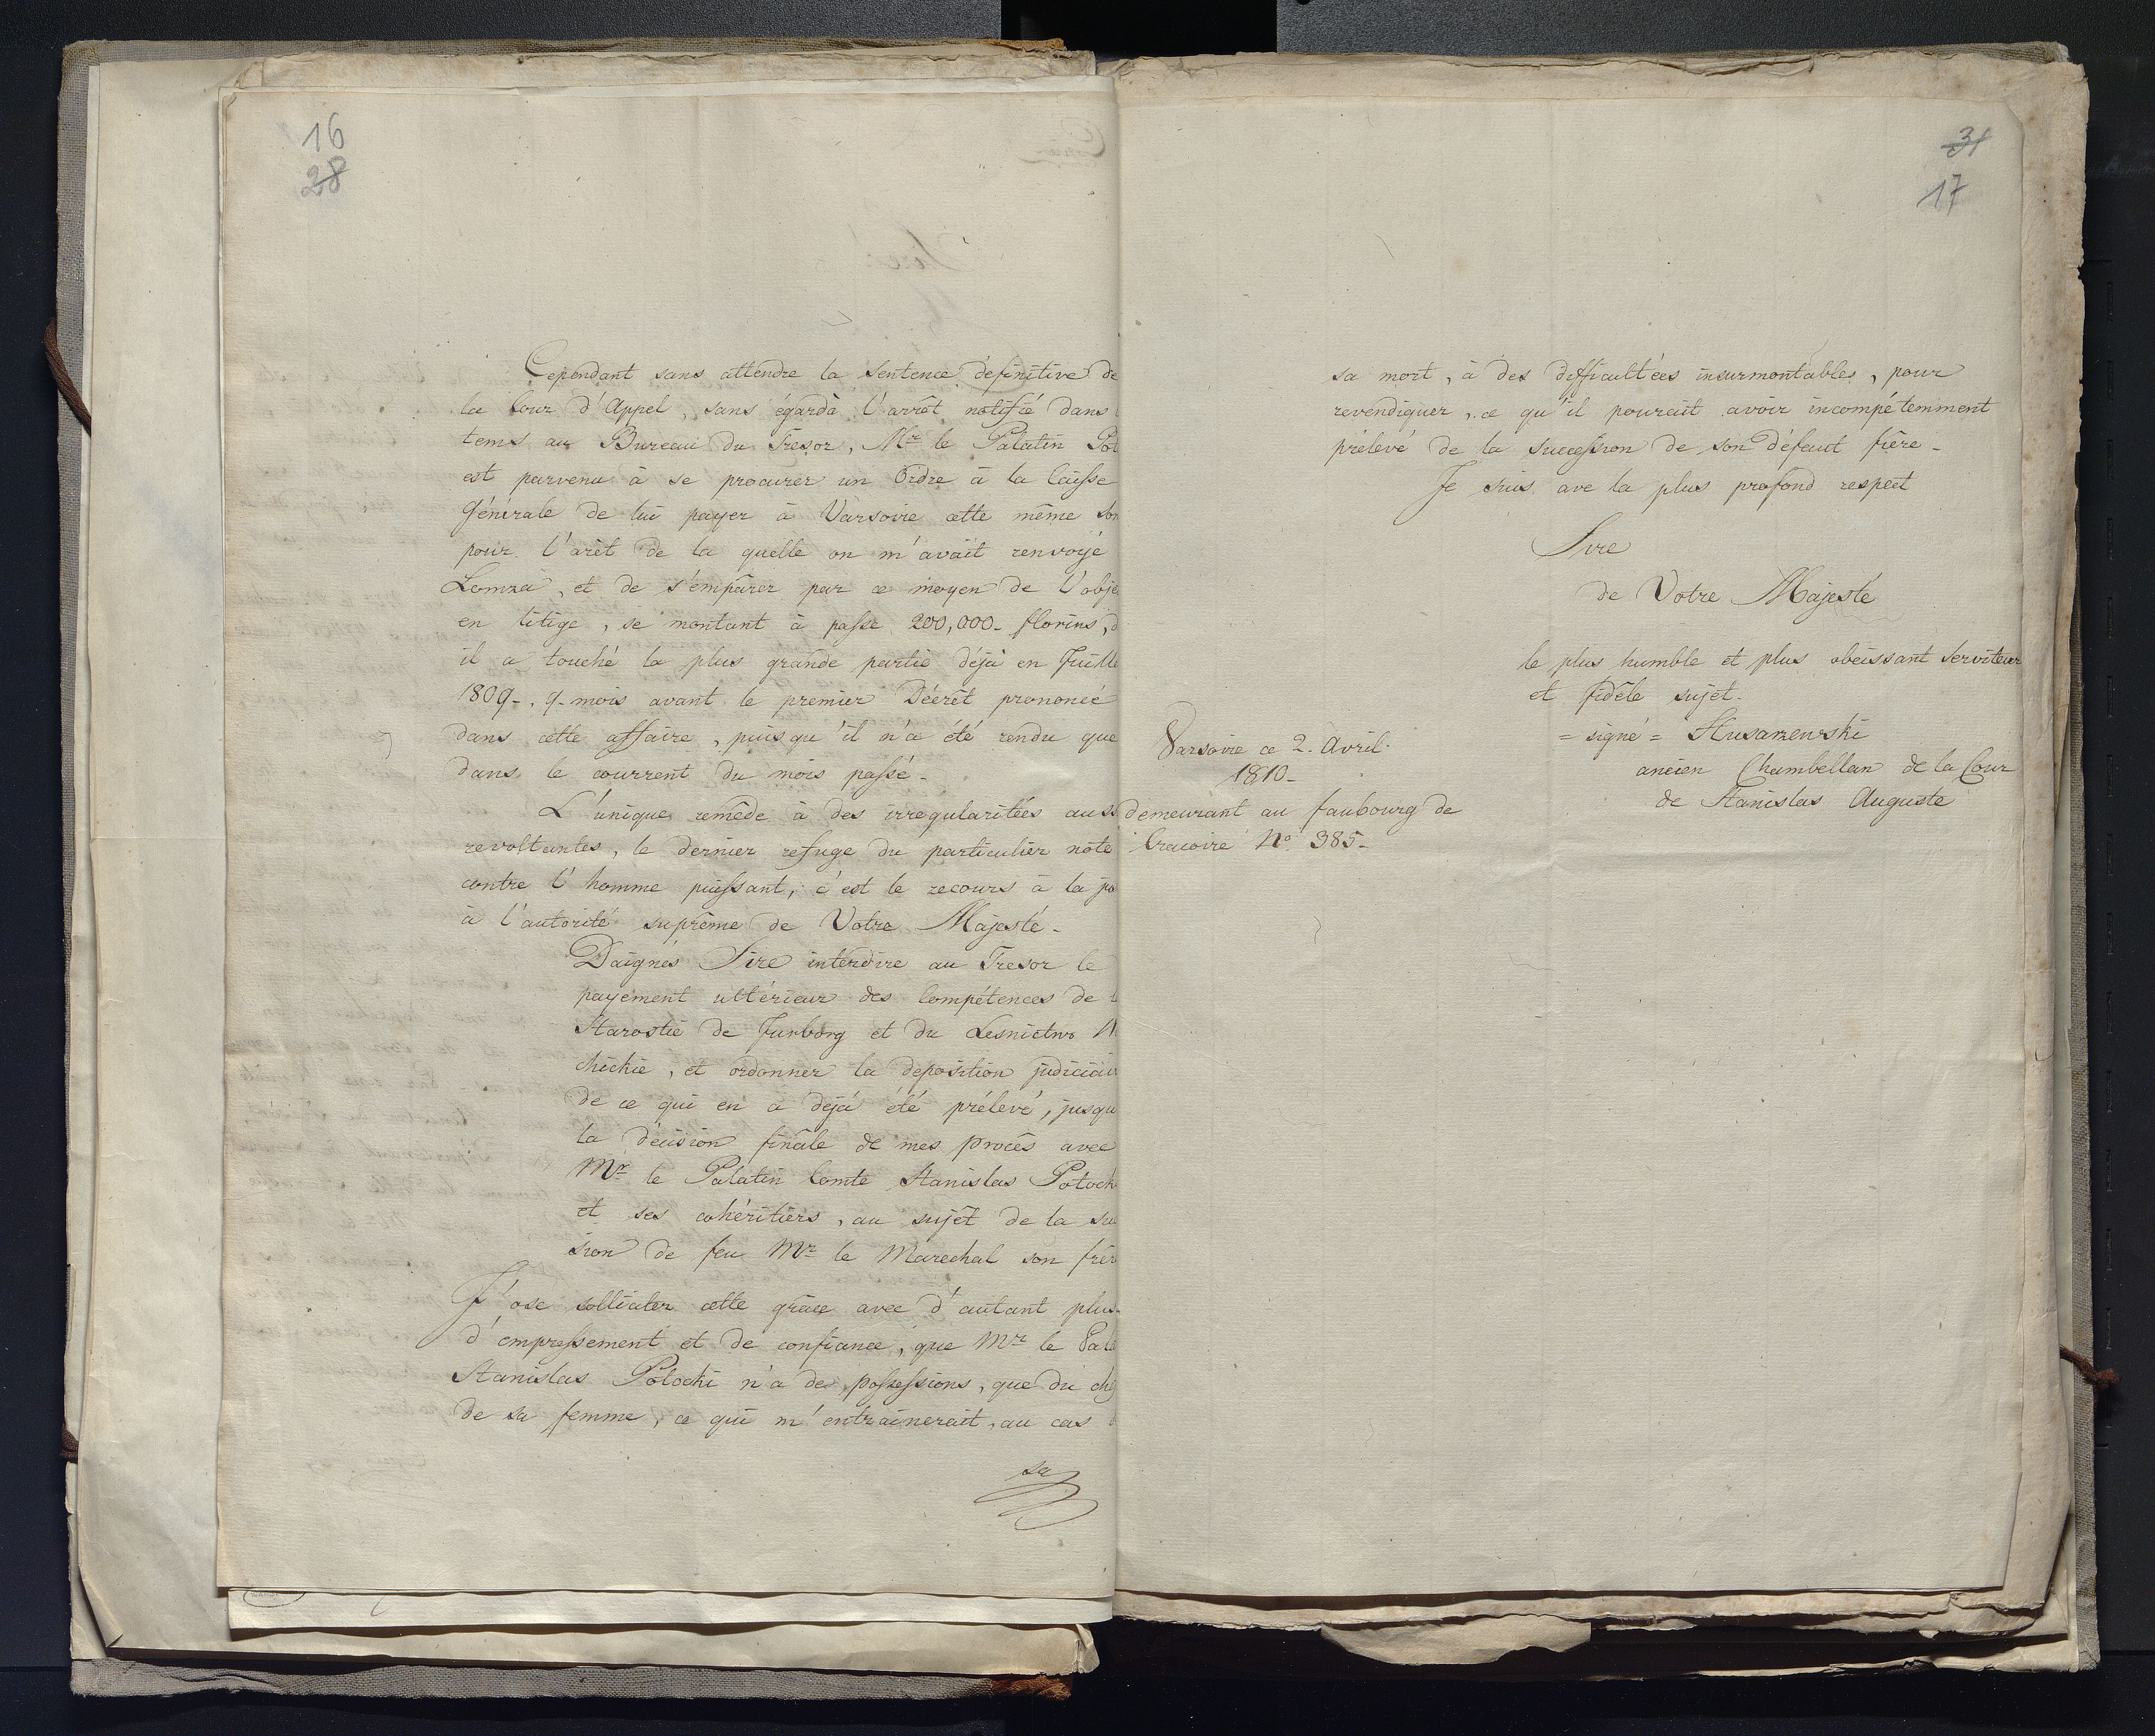 16
28
Cependant sans attendre la Sentence définitive de
la Cour d'Appel, sans égard à l'arrêt notifié dans
tems au Bureau du Trésor, Mr le Palatin Pot
est parvenu à se procurer un Ordre à la Caisse
Générale de lui payer à Varsovie cette même Som
pour l'arêt de la quelle on m'avait renvoyé
Lomza, et de s'emparer par ce moyen de l'obje
en litige, se montant à passe 200,000- florins, d
il a touché la plus grande partie déjà en Juille
1809-, 9-mois avant le premier Décrêt prononcé
dans cette affaire, puisqu'il n'a été rendu que
dans le courrent du mois passé-
L'unique remêde à des irregularitées auss
revoltantes, le dernier refuge du particulier
contre l'homme puissant, c'est le recours à la
à l'autorité suprême de Votre Majesté-
Daignés Sire interdire au Tresor le
payement ultérieur des Compétences de l
Starostie de Jurborg et du Lesnictwo
chichie, et ordonner la deposition judiciai
de ce qui en a déjà été prélevé, jusqu
la décision finale de mes procès avec
Mr le Palatin Comte Stanislas Potock
et ses cohéritiers, au sujêt de la su
sion de feu Mr le Marechal son frèr
J'ose solliciter cette grâce avec d'autant plus
d'empressement et de confiance, que Mr le Pala
Stanislas Potocki n'a de possessions, que du
de sa femme, ce qui m'entrainerait, au cas
sa
31
17
sa mort, à des difficultées insurmontables, pour
revendiquer, ce qu'il pourait avoir incompétemment
prélevé de la succession de son défeut frère-
Je suis ave la plus profond respect
Sire
de Votre Majesté
le plus humble et plus obeissant Serviteur
et fidèle sujet-
= signé = Husarzewski
ancien Chambellan de la Cour
de Stanislas Auguste
Varsovie ce 2. Avril
1810-
demeurant au faubourg de
Cracovie No 385-